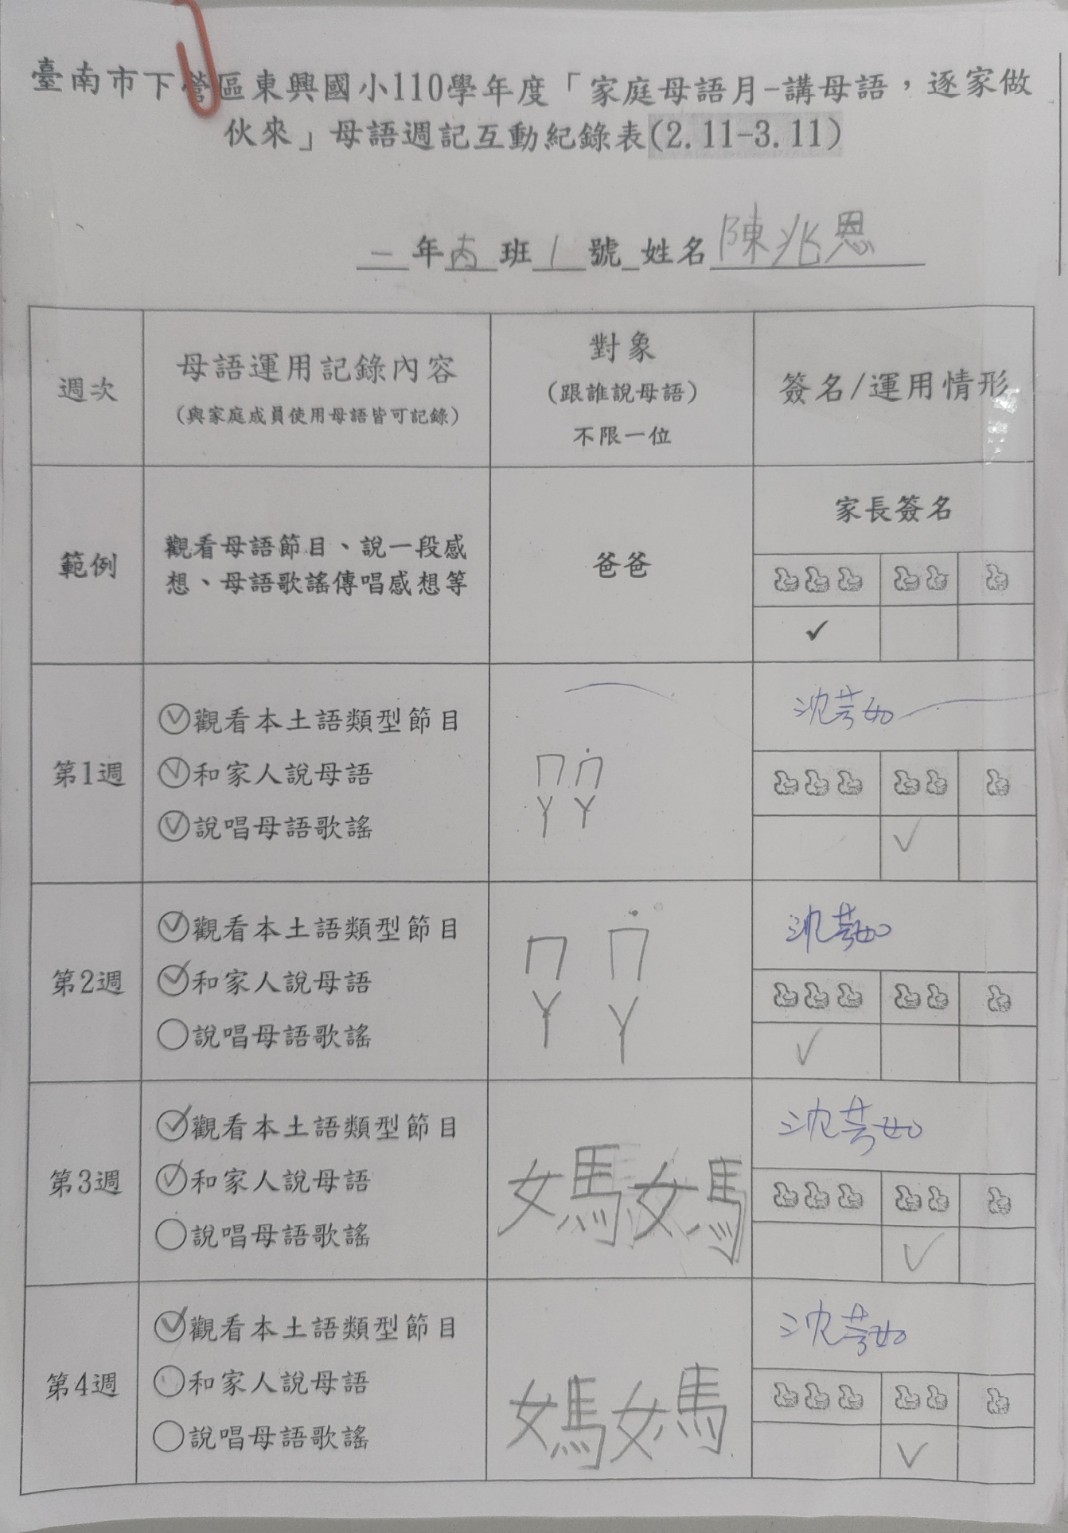 臺南市下營區東興國小110學年度「家庭母語月-講母語，逐家做
伙來」母語週記互動紀錄表(2.11-3.11)
二年丙班1號 姓名 陳兆恩
週次
母語運用記錄內容
(與家庭成員使用母語皆可記錄)
對象
(跟誰說母語)
不限一位
簽名/運用情形
範例
觀看母語節目、說一段感
想、母語歌謠傳唱感想等
爸爸
家長簽名
✓
第1週
✓觀看本土語類型節目
✓和家人說母語
✓說唱母語歌謠
ㄇㄚ ㄇㄚ˙
沈芳如
✓
第2週
✓觀看本土語類型節目
✓和家人說母語
○說唱母語歌謠
ㄇㄚ ㄇㄚ˙
沈芳如
✓
第3週
✓觀看本土語類型節目
✓和家人說母語
○說唱母語歌謠
媽媽
沈芳如
✓
第4週
✓觀看本土語類型節目
○和家人說母語
○說唱母語歌謠
媽媽
沈芳如
✓